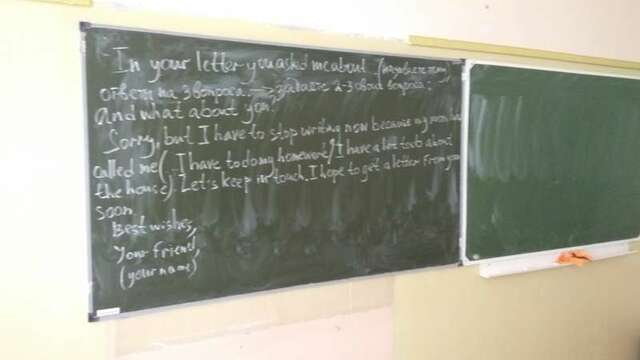 In your letter you asked me about (называете тему)
ответы на 3 вопроса. => задаете 2-3 своих вопроса.
And what about you?
Sorry, but I have to stop writing now because my mom has
called me ( I have to do my homework / I have a lot to do about
the house). Let's keep in touch. I hope to get a letter from you
soon
Best wishes,
Your friend,
(your name)